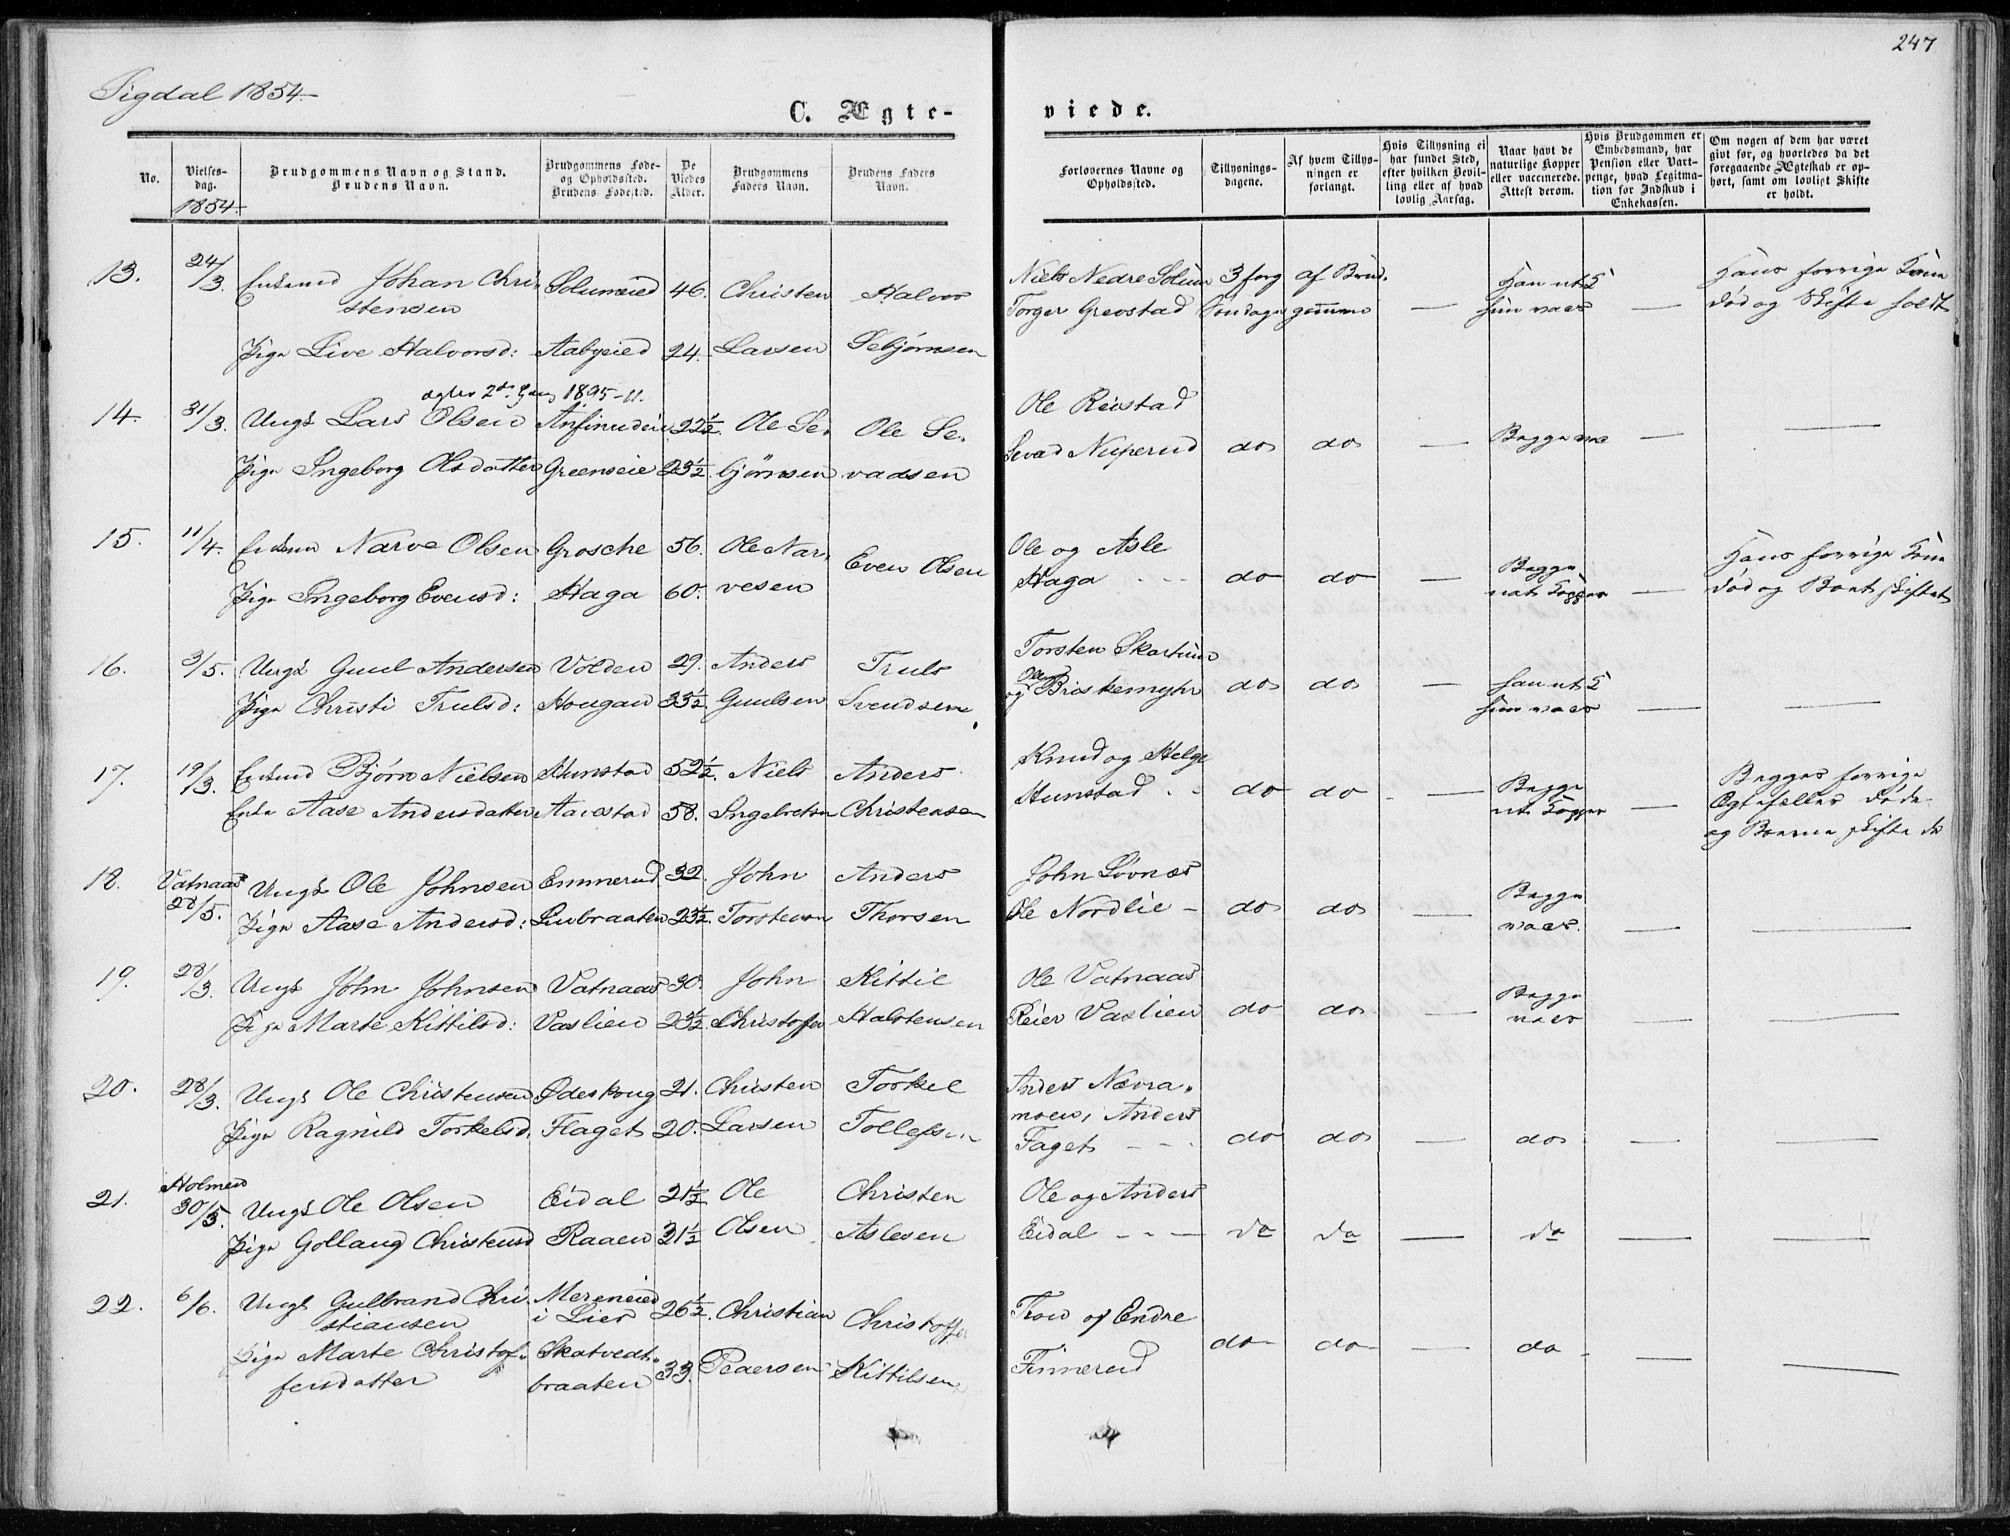 247
Sigdal 1854.
C. Ægte-
viede.
No.
Vielses-
dag.
1854.
Brudgommens Navn og Stand.
Brudens Navn.
Brudgommens Føde-
og Opholdssted.
Brudens Fødested.
De
Viedes
Alder.
Brudgommens
Faders Navn.
Brudens Faders
Navn.
Forlovernes Navne og
Opholdssted.
Tillysnings-
dagene.
Af hvem Tillys-
ningen er
forlangt.
Hvis Tillysning ei
har fundet Sted,
efter hvilken Bevil-
ling eller af hvad
lovlig Aarsag.
Naar havt de
naturlige Kopper
eller vaccinerede.
Attest derom.
Hvis Brudgommen er
Embedsmand, har
Pension eller Vart-
penge, hvad Legitima-
tion for Indskud i
Enkekassen.
Om nogen af dem har været
givt før, og hvorledes da det
foregaaende Ægteskab er op-
hørt, samt om lovligt Skifte
er holdt.
13. 24/3. Enkemd Johan Chri- Solumeied 46. Christen Halvor Niels Nedre Solum 3 forg af Brud- Han nt K Hans forrige Kone
stensen Torger Grevstad Søndage gommen — hun vacc — død og Skifte holdt
Pige Live Halvorsd: Aabyeied 24. Larsen Sebjørnsen
2d. Gang 1895-11.
14. 31/3. Ungk Lars Olsen 22½. Ole Se- Ole Se- Ole Reistad
Sevad Nuperud do do — Begge — —
Pige Ingeborg Olsdatter Greenseie 23½. bjørnsen vadsen
15. 11/4. Narve Olsen Grosche 56. Ole Nar- Even Olsen Ole og Asle Hans forrige Kone
Pige Ingeborg Evensd: Haga 60. vesen Haga do do — Begge nat Kopper — død og Boet skiftet
16. 3/5. Ungk Guul Andersen Volden 29. Anders Truls Torsten Skartum
Pige Christi Trulsd: Hougan 33½ Guulsen Svendsen og Ole Briskemyhr do do — han nt K hun vacc — —
17. 19/3. Enkemd Bjørn Nielsen Hunstad 52½. Niels Anders Knud og Helge Begges forrige
Enke Aase Andersdatter Aarestad 58. Ingebretsen Christensen Hunstad do do — Begge nt Kopper — Ægtefæller døde
og Boerne skifte
18. Vatnaas Ungk Ole Johnsen Emmerud 32. John Anders John Løvnæs Begge
28/5. Pige Aase Andersd: Liebraaten 23½. Torstensen Thorsen Ole Nordlie do do — vacc. — —
19. 28/3. Ungk John Johnsen Vatnaas 30. John Kittil Ole Vatnaas Begge
Pige Marte Kittilsd: Vaslien 23½ Christoffer Halstensen Reier Vaslien do do — vacc — —
20. 28/3. Ungk Ole Christensen Ødeskoug 21. Christen Torkel Anders Nævra-
moen, Anders
Pige Ragnild Torkelsd. Flaget 20. Larsen Tollefsen Faget do do — do — —
21. Holmen
30/5. Ungk Ole Olsen Eidal 21½ Ole Christen Ole og Anders
Pige Gollaug Christensd Raaen 31½ Olsen Aslesen Eidal do do — do — —
22. 6/6. Ungk Gulbrand Chri- Mereneied 26½. Christian Christoffer Tron og Endre
stiansen i Lier do do do — —
Pige Marte Christof- Skatvedt- 33. Pedersen Kittilsen Finnerud
fersdatter braaten